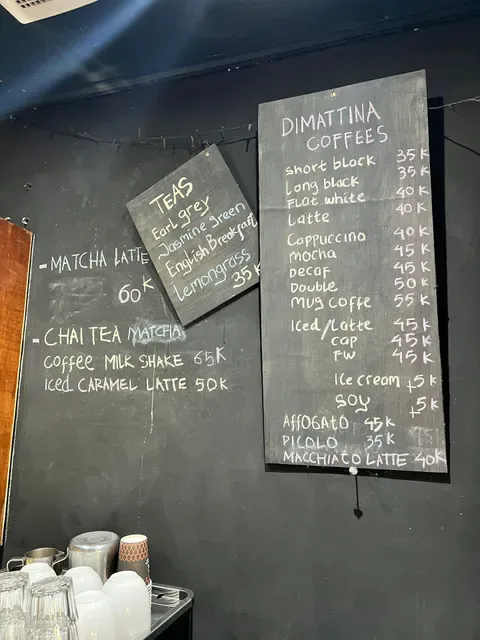 DIMATTINA
COFFEES
short black 35K
long black 35K
FLat white 40K
Latte 40K
Cappuccino 40K
mocha 45K
Decaf 45K
Double 50K
mug coffe 55K
Iced/Latte 45K
cap 45K
FW 45K
Ice cream +5K
SOY +5K
AFFOGATO 45K
PICOLO 35K
MACCHIATO LATTE 40K
TEAS
Earl grey
Jasmine green
English Breakfast
Lemongrass
35K
- MATCHA LATTE
60K
- CHAI TEA MATCHA
Coffee MILK SHAKE 65K
Iced CARAMEL LATTE 50K